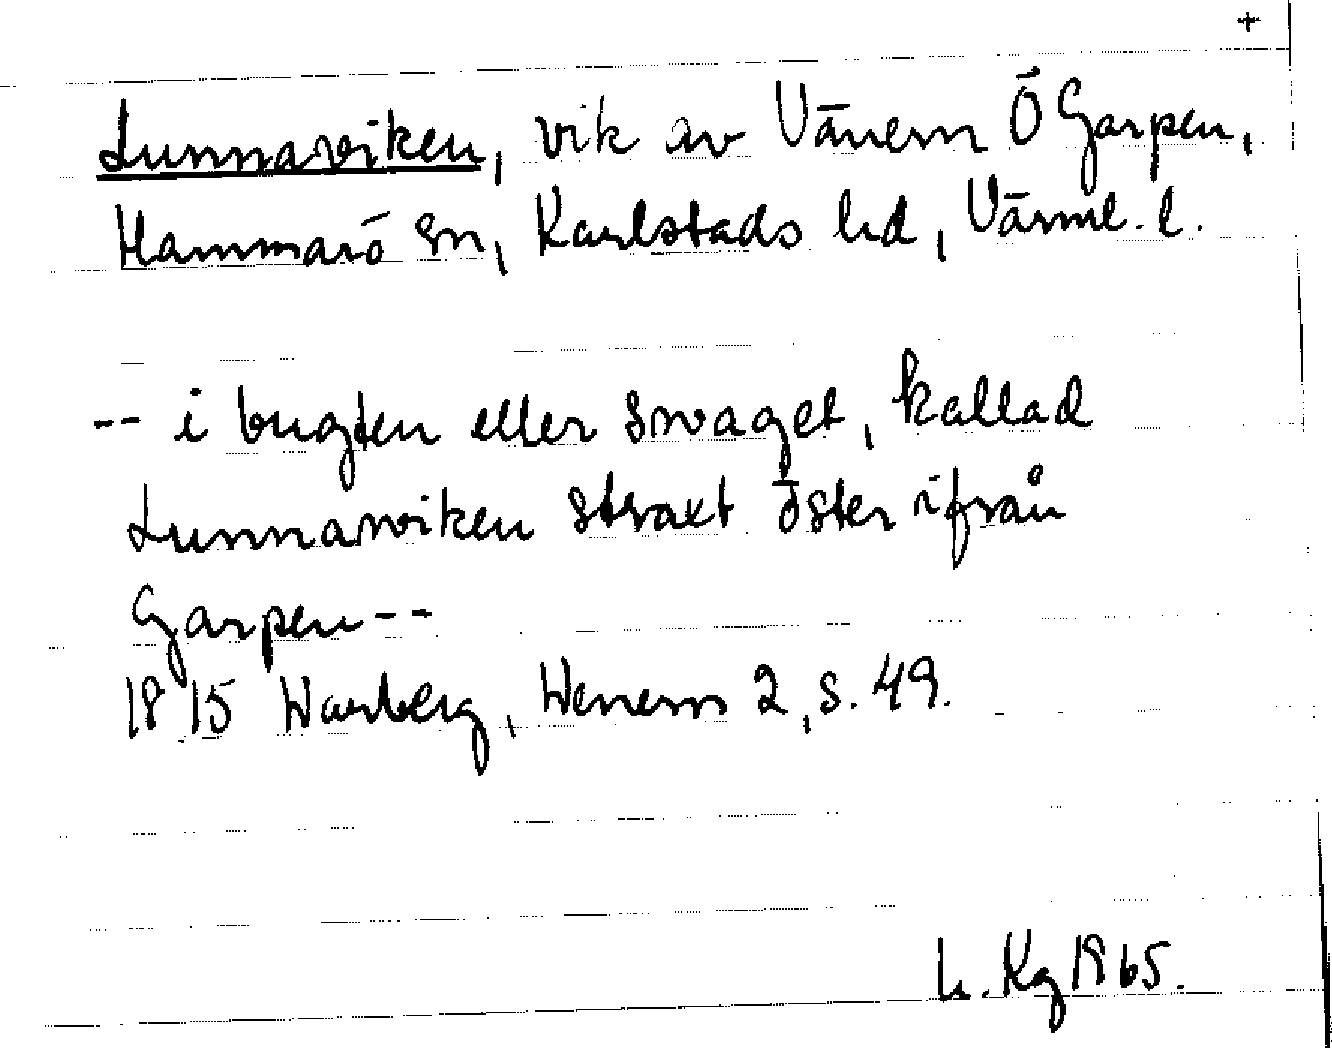 +
Lunnaviken, vik av Vänern Ö Garpen,
Hammarö sn, Karlstads hd, Värml. l.
-- i bugten eller svaget, kallad
Lunnarviken straxt öster ifrån
Garpen --
1815 Warberg, Wenern 2, s. 49.
L. Kg 1965.